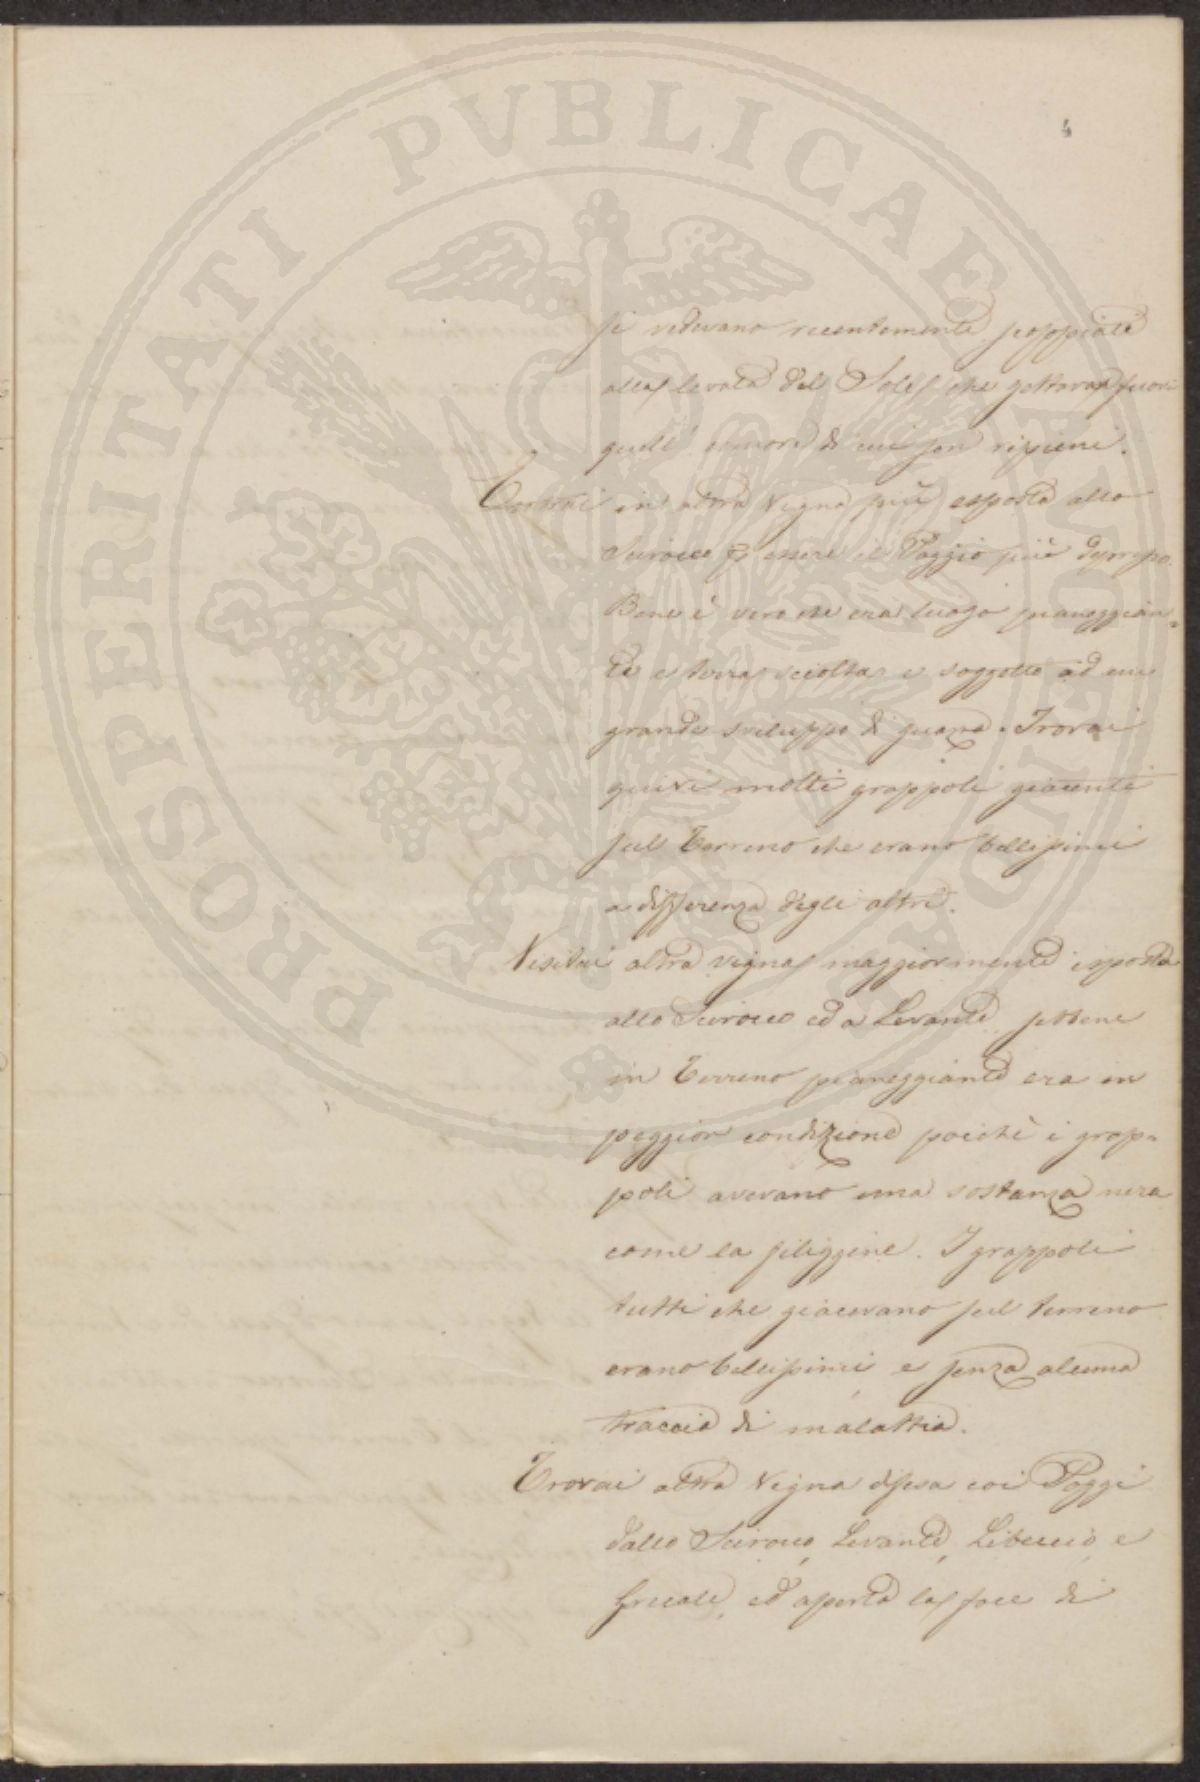 4
si vedevano recentemente scoppiate
alla levata del Sole, che gettavan fuori
quell' umore di cui son ripieni.
Entrai in altra Vigna più esposta allo
Scirocco p essere il Poggio più depresso.
Bene è vero che era luogo pianeggian=
te e terra sciolta e soggetto ad un
grande sviluppo di guazza. Trovai
quivi molti grappoli giacenti
sul Terreno che erano bellissimi
a differenza degli altri.
Visitai altra vigna maggiormente esposta
allo Scirocco ed a Levante sebbene
in Terreno pianeggiante era in
peggior condizione poichè i grap=
poli avevano una sostanza nera
come la filiggine. I grappoli
tutti che giacevano sul terreno
erano bellissimi e senza alcuna
traccia di malattia.
Trovai altra Vigna difesa coi Poggi
dallo Scirocco, Levante, Libeccio, e
Grecale, ed aperta la foce di
PROSPERITATI PUBLICAE AUGENDAE